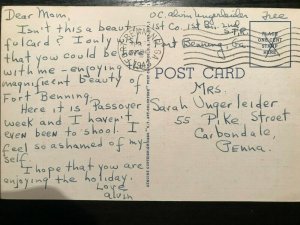 Dear Mom,
Isn't this a beautiful
fulcard? I only wish
that you could be here
with me - enjoying the
magnificent beauty of
Fort Benning.
Here it is Passover
week and I haven't
even been to shool. I
feel so ashamed of my
self.
I hope that you are
enjoying the holiday.
Love
alvin
O.C. alvin Ungerleider
1st Co. 1st
Fort Benning, Ga.
Free
PLACE
ONE CENT
STAMP
HERE
POST CARD
Mrs.
Sarah Ungerleider
55 Pike Street
Carbondale,
Penna.